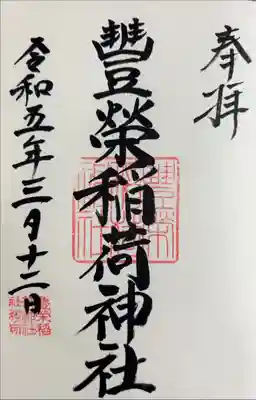 奉拝
豐榮稲荷神社
令和五年三月十二日